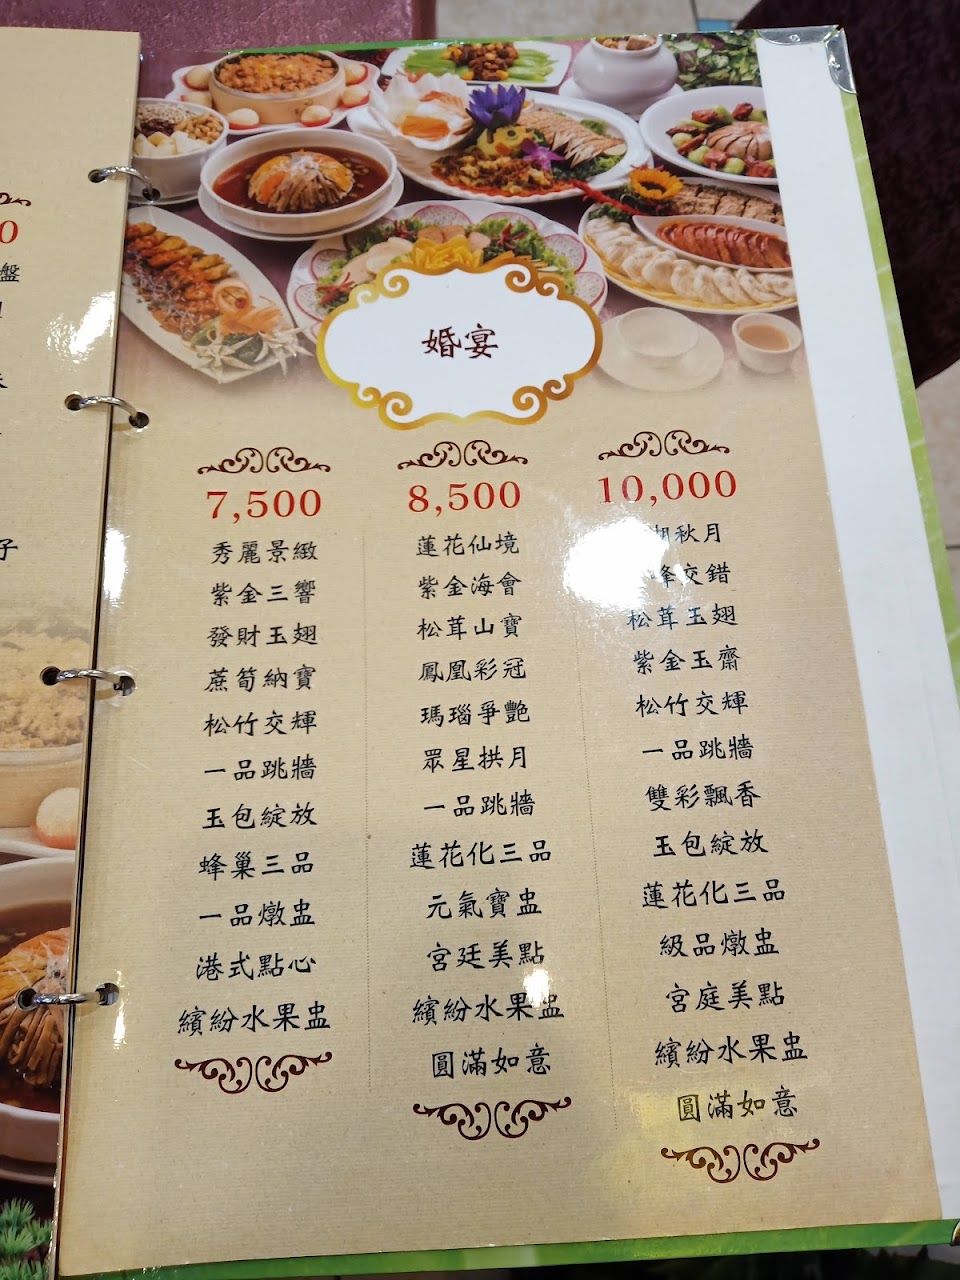 0
盤
子
婚宴
7,500
秀麗景緻
紫金三響
發財玉翅
蔗筍納寶
松竹交輝
一品跳牆
玉包綻放
蜂巢三品
一品燉盅
港式點心
繽紛水果盅
8,500
蓮花仙境
紫金海會
松茸山寶
鳳凰彩冠
瑪瑙爭艷
眾星拱月
一品跳牆
蓮花化三品
元氣寶盅
宮廷美點
繽紛水果盅
圓滿如意
10,000
秋月
交錯
松茸玉翅
紫金玉齋
松竹交輝
一品跳牆
雙彩飄香
玉包綻放
蓮花化三品
級品燉盅
宮庭美點
繽紛水果盅
圓滿如意